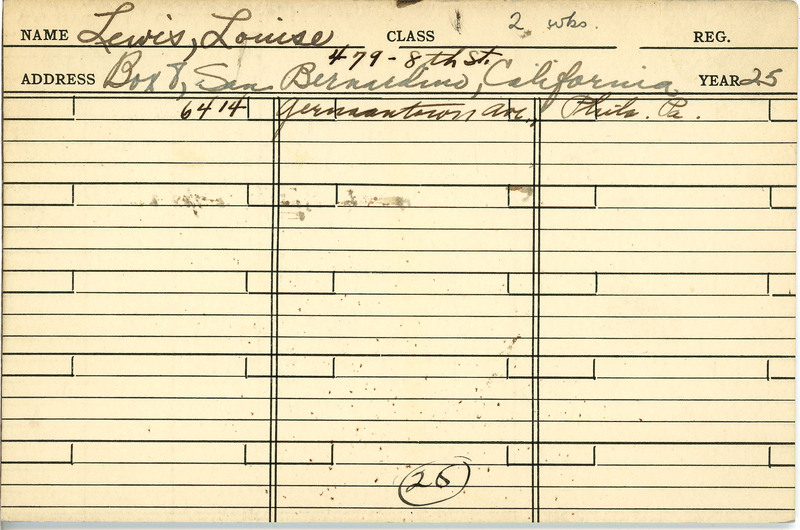 NAME Lewis, Louise CLASS 2 wks. REG.
479 - 8th St.
ADDRESS Box 8, San Bernardino, California YEAR 25
6414 Germantown Ave., Phila. Pa.
25